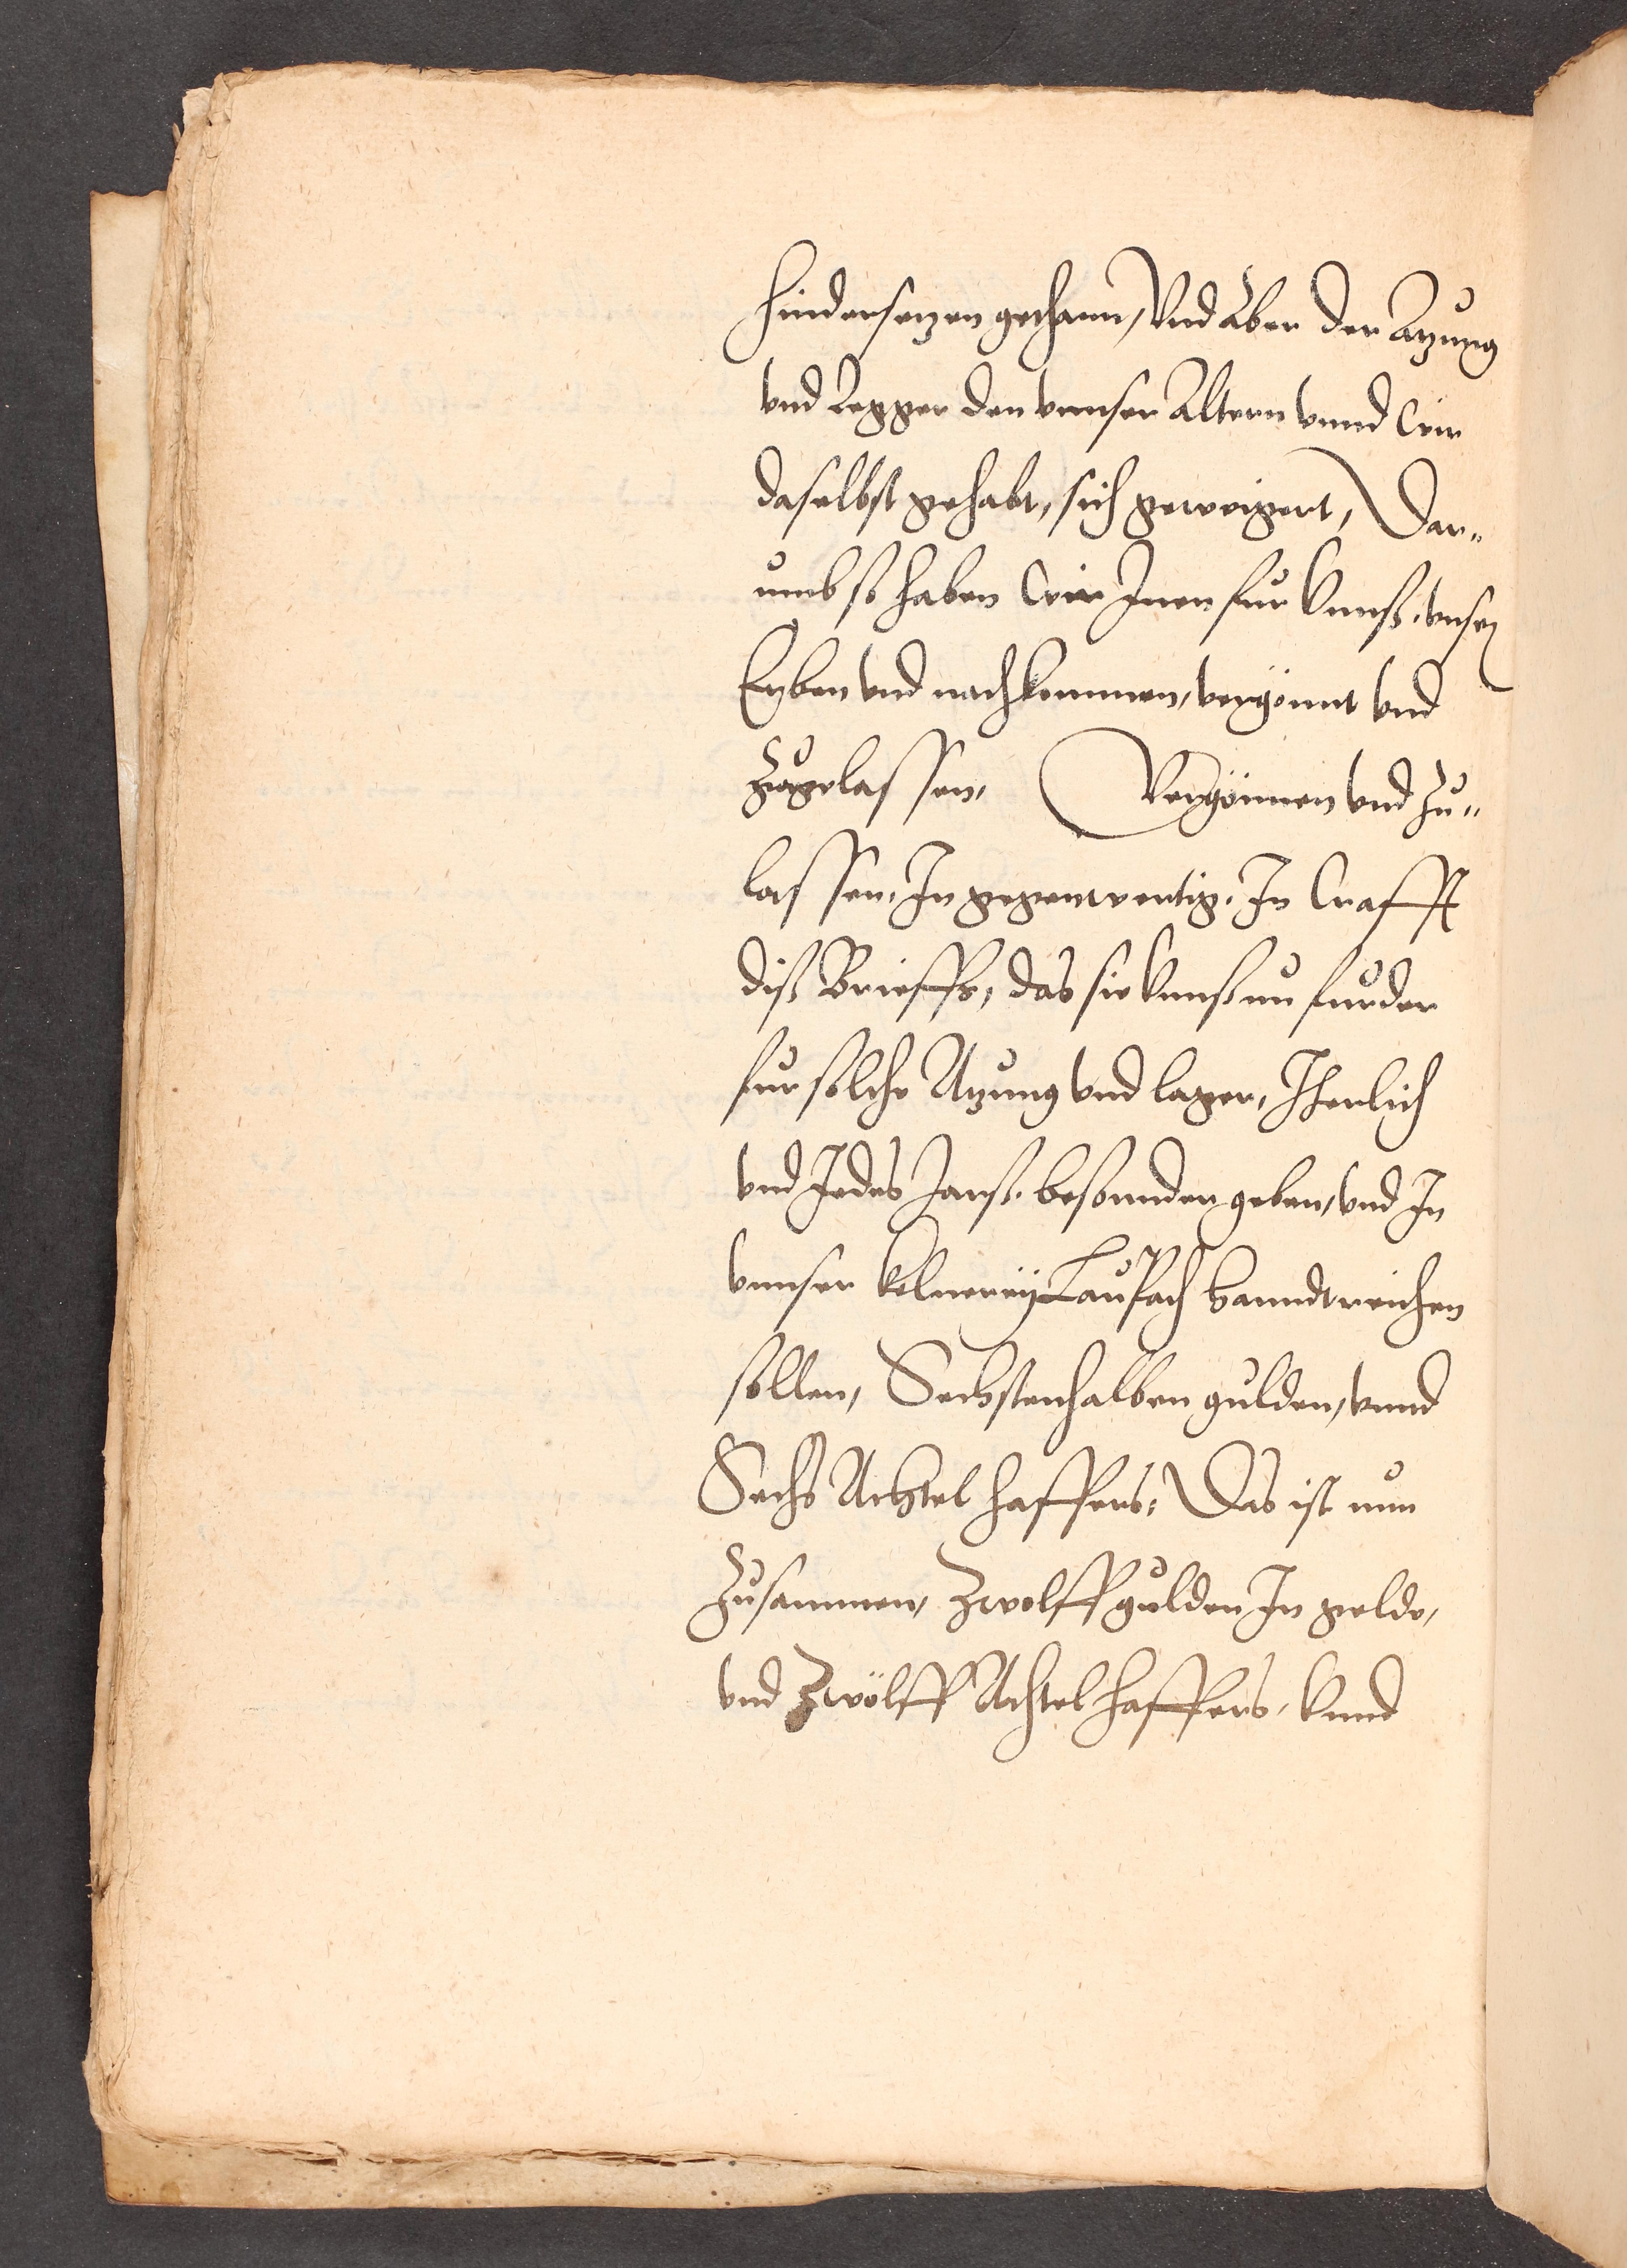 hindersetzen gethann, Vnd aber der Atzung
vnd Legger den vnnser Altern vnnd Wir
daselbst gehabt, sich geweigert, Dar„
umb so haben Wir Inen fur Vnnß, vnser
Erben vnd nachkommen, vergönnt vnd
zugelassen, Vergönnen vnd zu„
lassen, In gegenwertig, In Crafft
diß Brieffs, das sie Vnnß nu furder
fur solche Atzung vnd lager, Iherlich
vnd Jedes Jarß besonnder geben, vnd In
vnnser kelnereÿ Laupach hanndtreichen
sollen, Sechstenhalben gulden, vnnd
Sechs Achtel haffers, Das ist nun
zusammen, Zwolff gulden In gelde,
vnd Zwölff Achtel haffers, Vnnd